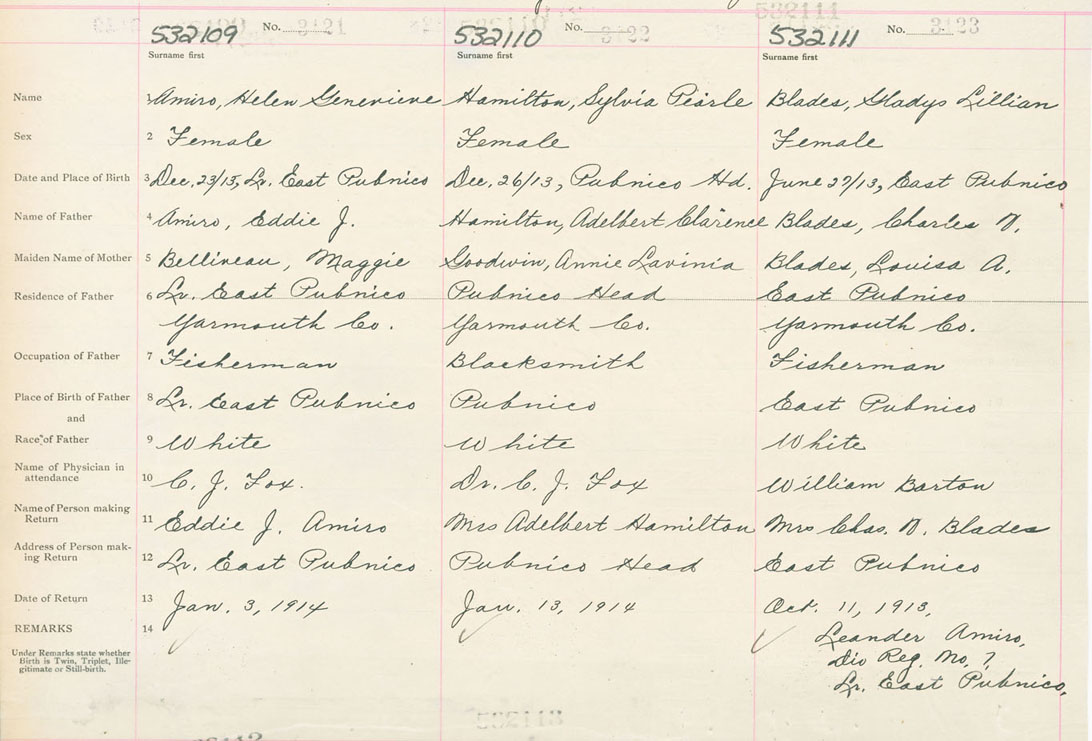 532109 No. 3121 532110 No. 3122 532111 No. 3123
Surname first Surname first Surname first
Name 1 Amiro, Helen Genevieve Hamilton, Sylvia Pearle Blades, Gladys Lillian
Sex 2 Female Female Female
Date and Place of Birth 3 Dec. 23/13, Lr. East Pubnico Dec. 26/13, Pubnico Hd. June 27/13, East Pubnico
Name of Father 4 Amiro, Eddie J. Hamilton, Adelbert Clarence Blades, Charles N.
Maiden Name of Mother 5 Bellineau, Maggie Goodwin, Annie Lavinia Blades, Louisa A.
Residence of Father 6 Lr. East Pubnico Pubnico Head East Pubnico
Yarmouth Co. Yarmouth Co. Yarmouth Co.
Occupation of Father 7 Fisherman Blacksmith Fisherman
Place of Birth of Father 8 Lr. East Pubnico Pubnico East Pubnico
and
Race of Father 9 White White White
Name of Physician in
attendance 10 C. J. Fox. Dr. C. J. Fox William Barton
Name of Person making
Return 11 Eddie J. Amiro Mrs Adelbert Hamilton Mrs Chas. N. Blades
Address of Person mak-
ing Return 12 Lr. East Pubnico Pubnico Head East Pubnico
Date of Return 13 Jan. 3, 1914 Jan. 13, 1914 Oct. 11, 1913,
REMARKS 14 Leander Amiro,
Under Remarks state whether
Birth is Twin, Triplet, Ille-
gitimate or Still-birth.
Div Reg. No. 7,
Lr. East Pubnico,
532113